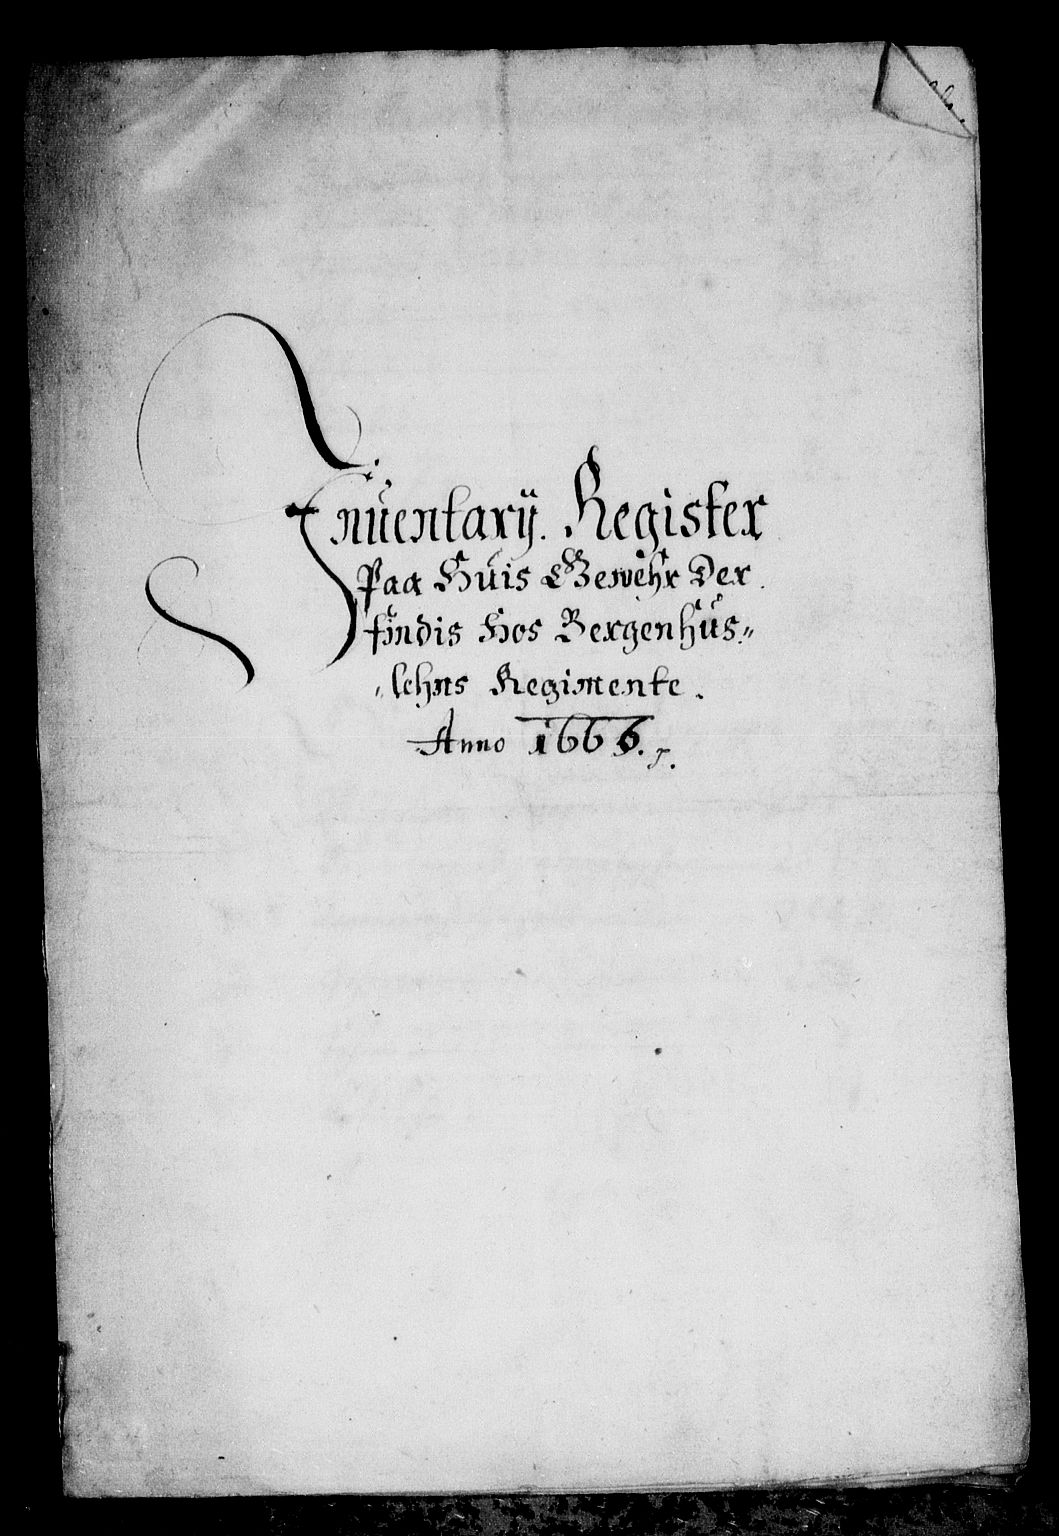 Inuentarÿ. Register
Paa Huis Gewehr Der
findis Hos Bergenhús„
„lehns Regimente.
Anno 1666.